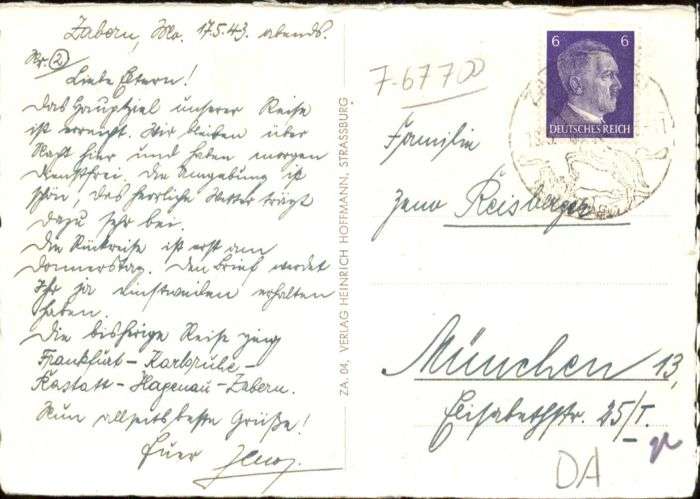 Zabern, Mo. 17.5.43. abends.
Nr. 2
Liebe Eltern!
Das Hauptziel unserer Reise
ist erreicht. Wir bleiben über
Nacht hier und haben morgen
dienstfrei. Die Umgebung ist
schön, das herrliche Wetter trägt
dazu sehr bei.
Die Rückreise ist erst am
Donnerstag. Den Brief werdet
Ihr ja einstweilen erhalten
haben.
Die bisherige Reise ging
Frankfurt - Karlsruhe -
Rastatt - Hagenau - Zabern.
Nun allseits beste Grüße!
Euer
ZA. 04, VERLAG HEINRICH HOFFMANN, STRASSBURG
7-67700
6 6
DEUTSCHES REICH
Familie
Zeno Reisberger
München 13,
Elisabethstr. 25/I.
DA